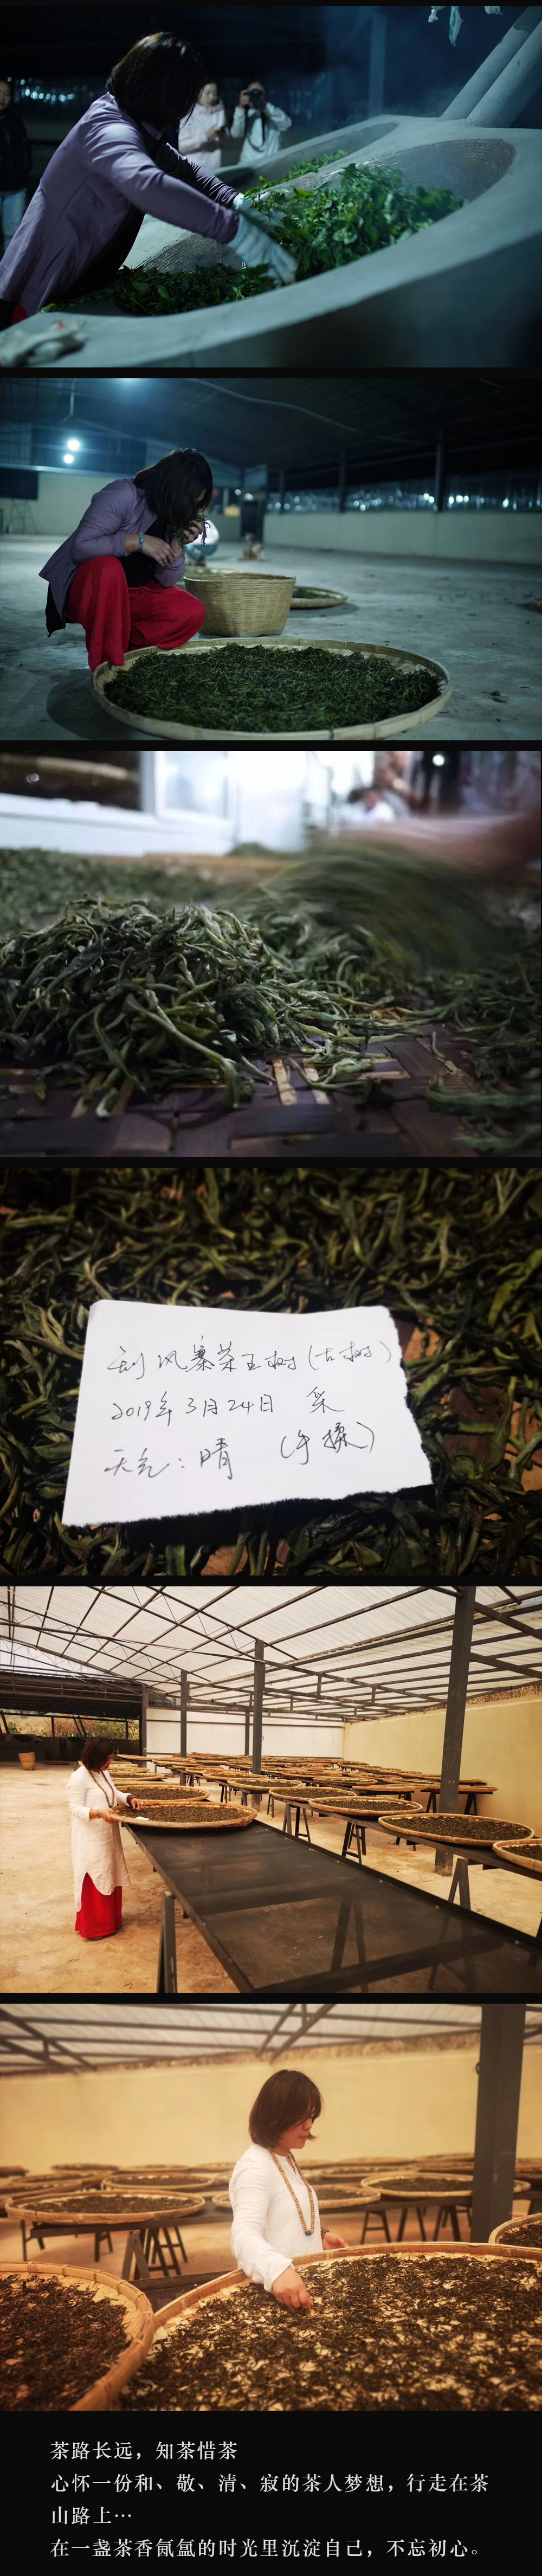 刮风寨茶王树(古树)
2019年3月24日 采
天气:晴 (手揉)
茶路长远，知茶惜茶
心怀一份和、敬、清、寂的茶人梦想，行走在茶
山路上…
在一盏茶香氤氲的时光里沉淀自己，不忘初心。